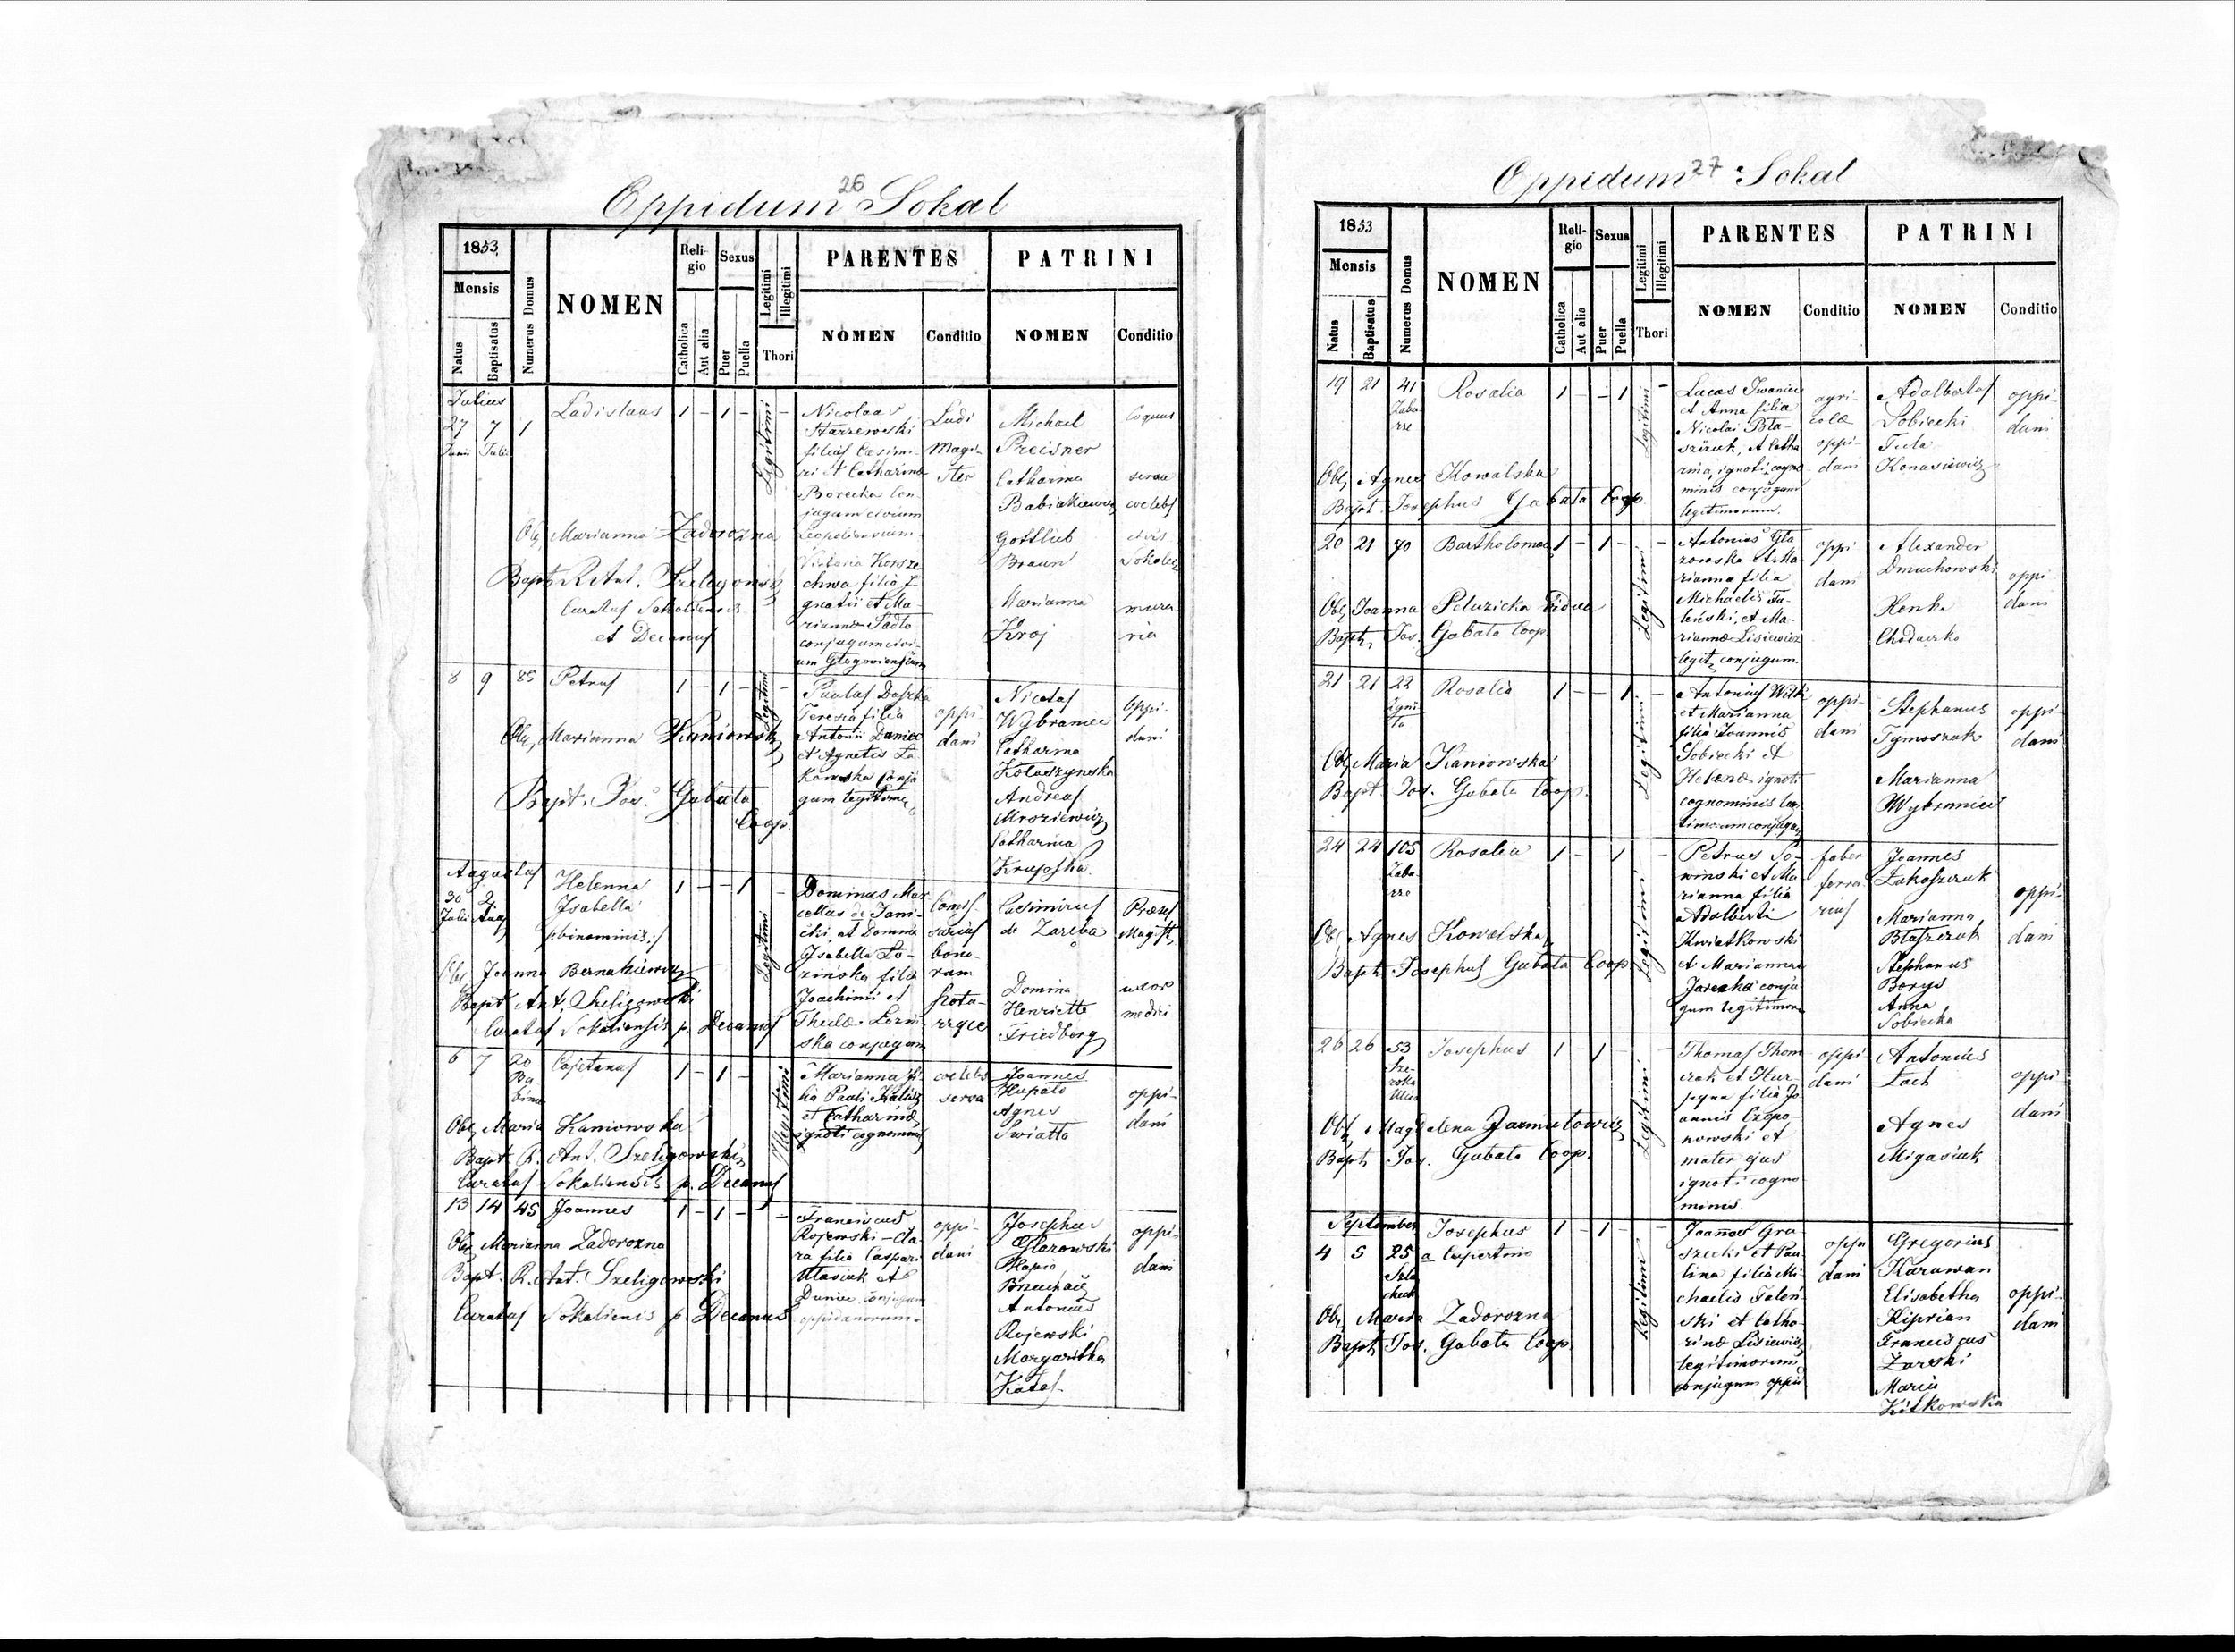 26
Oppidum Sokal
1853
Mensis
Natus
Baptisatus
Numerus Domus
NOMEN
Religio
Catholica
Aut alia
Sexus
Puer
Puella
Legitimi
Illegitimi
Thori
PARENTES
NOMEN
Conditio
PATRINI
NOMEN
Conditio
Julius
27 7 1 Ladislaus 1 - 1 - Legitimi -
Junii Julii
Nicolaus
Starzewski
filius Casimi-
ri et Catharina
Borecka con
jugum civium
Leopoliensium
Victoria Korsze
chwa filia I-
gnatii et Ma-
rianna Sadło
conjugum civi-
um Głogoviensium
Ludi
Magi-
ster
Michael
Preisner
Catharina
Babiakiewicz
Gottlieb
Braun
Marianna
Kroj
coquus
serva
coelebs
civis
Sokalen
mura
ria
Obs, Marianna Zadorozna
Bapt. R. Ant. Szeligowski
Curatus Sokaliensis
et Decanus
8 9 85 Petrus 1 - 1 - Legitimi -
Paulus Doszka
Teresia filia
Antonii Daniec
et Agnetis
gum legitimi
oppi-
dani
Nicolas
Wybraniec
Catharina
Kołaszynska
Andreas
Mroziewicz
Catharina
Krupska
Oppi-
dani
Obs, Marianna Kaniowska
Bapt. Jos. Gabata
Coop.
Augustus
30 2 Helenna 1 - - 1 Legitimi -
Juli Aug Isabella
/:binominis:/
Dominus Mar
cellus de Jani-
cki, et Domina
Isabella Ło-
zińska filia
Joachimi et
Theclæ Łozin
ska conjugum
Comis-
sarius
bono-
rum
Casimirus
de Zaręba
Domina
Henriette
Friedberg
Præses
Magist,
uxor
medici
Obs Joanna Bernakiewicz
Bapt Ant. Szeligowski
Curatus Sokaliensis p. Decanus
6 7 20 Cajetanus 1 - 1 - Illegitimi
Marianna fi-
lia Pauli Kalisz
et Catharinæ
ignoti cognominis
coelebs
serva
Joannes
Hupało
Agnes
Swiatła
oppi-
dani
Obs, Maria Kaniowska
Bapt R. Ant. Szeligowski
Curatus Sokaliensis p. Decanus
13 14 45 Joannes 1 - 1 - -
Franciscus
Rojewski - Cla-
ra filia Caspari
Utasiuk et
Duniec conjugum
oppidanorum.
oppi-
dani
Josephus
Głazowski
Hapio
Antonius
Rojewski
Margaritha
oppi-
dani
Obs, Marianna Zadorozna
Bapt. R. Ant. Szeligowski
Curatus Sokalienis p Decanus
27
Oppidum Sokal
1853
Mensis
Natus
Baptisatus
Numerus Domus
NOMEN
Religio
Catholica
Aut alia
Sexus
Puer
Puella
Legitimi
Illegitimi
Thori
PARENTES
NOMEN
Conditio
PATRINI
NOMEN
Conditio
19 21 41 Rosalia 1 - - 1 Legitimi -
Zabu-
rze
Lucas Iwaniec
et Anna filia
Nicolai Bła-
szczuk, et Catha
rina, ignoti cogno
minis conjugum
legitimorum.
agri-
colæ
oppi-
dani
Adalbertus
Sobiecki
Tecla
Konasiewicz
oppi-
dani
Obs, Agnes Kowalska
Bapt. Josephus Gabata Coop
20 21 70 Bartholomæus 1 - 1 - Legitimi -
Antonius Gła
zowska et Ma-
rianna filia
Michaelis Ta-
leński, et Ma-
riannæ Lisiewicz
legit, conjugum.
oppi
dani
Alexander
Dmuchowski
Xenka
Chodaczko
oppi
dani
Obs, Joanna Peluzicka Vidua
Bapt, Jos. Gabata Coop.
21 21 22 Rosalia 1 - - 1 Legitimi -
Antonius Wilk
et Marianna
filia Joannis
Sobiecki et
Helenæ ignoti
cognominis legi
timorum conjugum
oppi-
dani
Stephanus
Tymoszuk
Marianna
Wybraniec
oppi-
dani
Obs, Maria Kaniowska
Bapt. Jos. Gabata Coop.
24 24 105 Rosalia 1 - 1 Legitimi -
Zabu-
rze
Petrus So-
winski et Ma-
rianna filia
Adalberti
Kwiatkowski
et Mariannæ
Jarecka conju
gum legitimoru
faber
ferra
rius
Joannes
Marianna
Błaszczuk
Stephanus
Borys
Anna
Sobiecka
oppi-
dani
Obs, Agnes Kowalska,
Bapt, Josephus Gabata Coop
26 26 53 Josephus 1 - 1 - Legitimi -
Sze-
roka
Ulica
Thomas Thom
czak et Hur-
pyna filia Jo
annis Czopo-
nowski et
mater ejus
ignoti cogno
minis
oppi
dani
Antonius
Łach
Agnes
Migasiuk
oppi
dani
Obs, Magdalena Jarmutowicz
Bapt, Jos. Gabata Coop.
September
4 5 25 Josephus 1 - 1 - Legitimi
a Cupertino
Joannes Gra
szecki et Pau
lina filia Mi
chaelis Talen-
ski et Catha-
rinæ Lisiewicz
legitimorum
conjugum oppid
oppi
dani
Gregorius
Karawan
Elisabetha
Kiprian
Franciscus
Żarski
Maria
Kitkowska
oppi-
dani
Obs, Maria Zadorozna
Bapt, Jos. Gabata Coop.